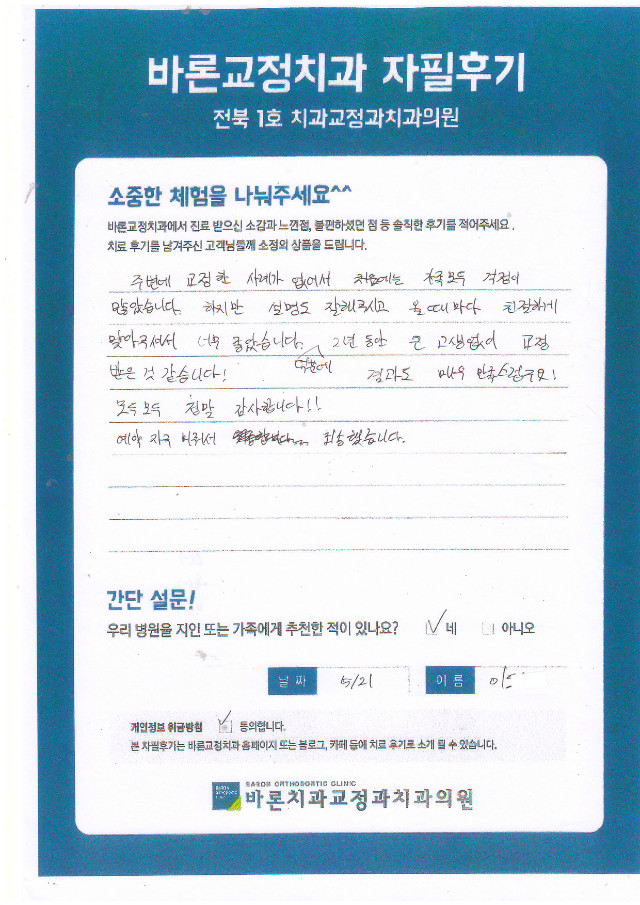 바론교정치과 자필후기
전북 1호 치과교정과치과의원
소중한 체험을 나눠주세요^^
바론교정치과에서 진료 받으신 소감과 느낀점, 불편하셨던 점 등 솔직한 후기를 적어주세요.
치료 후기를 남겨주신 고객님들께 소정의 상품을 드립니다.
주변에 교정한 사례가 없어서 처음에는 걱정이
많았습니다. 하지만 설명도 잘해주시고 올 때마다 친절하게
맞아주셔서 너무 좋았습니다. 2년 동안 큰 고생없이 교정
받은 것 같습니다! 덕분에 결과도 매우 만족스럽구요!
모두모두 정말 감사합니다!!
예약 자주 미뤄서 죄송했습니다.
간단 설문!
우리 병원을 지인 또는 가족에게 추천한 적이 있나요? 네 아니오
날짜 5/21 이름
개인정보 취급방침 동의합니다.
본 자필후기는 바론교정치과 홈페이지 또는 블로그, 카페 등에 치료 후기로 소개 될 수 있습니다.
BARON ORTHODONTIC CLINIC
바론치과교정과치과의원